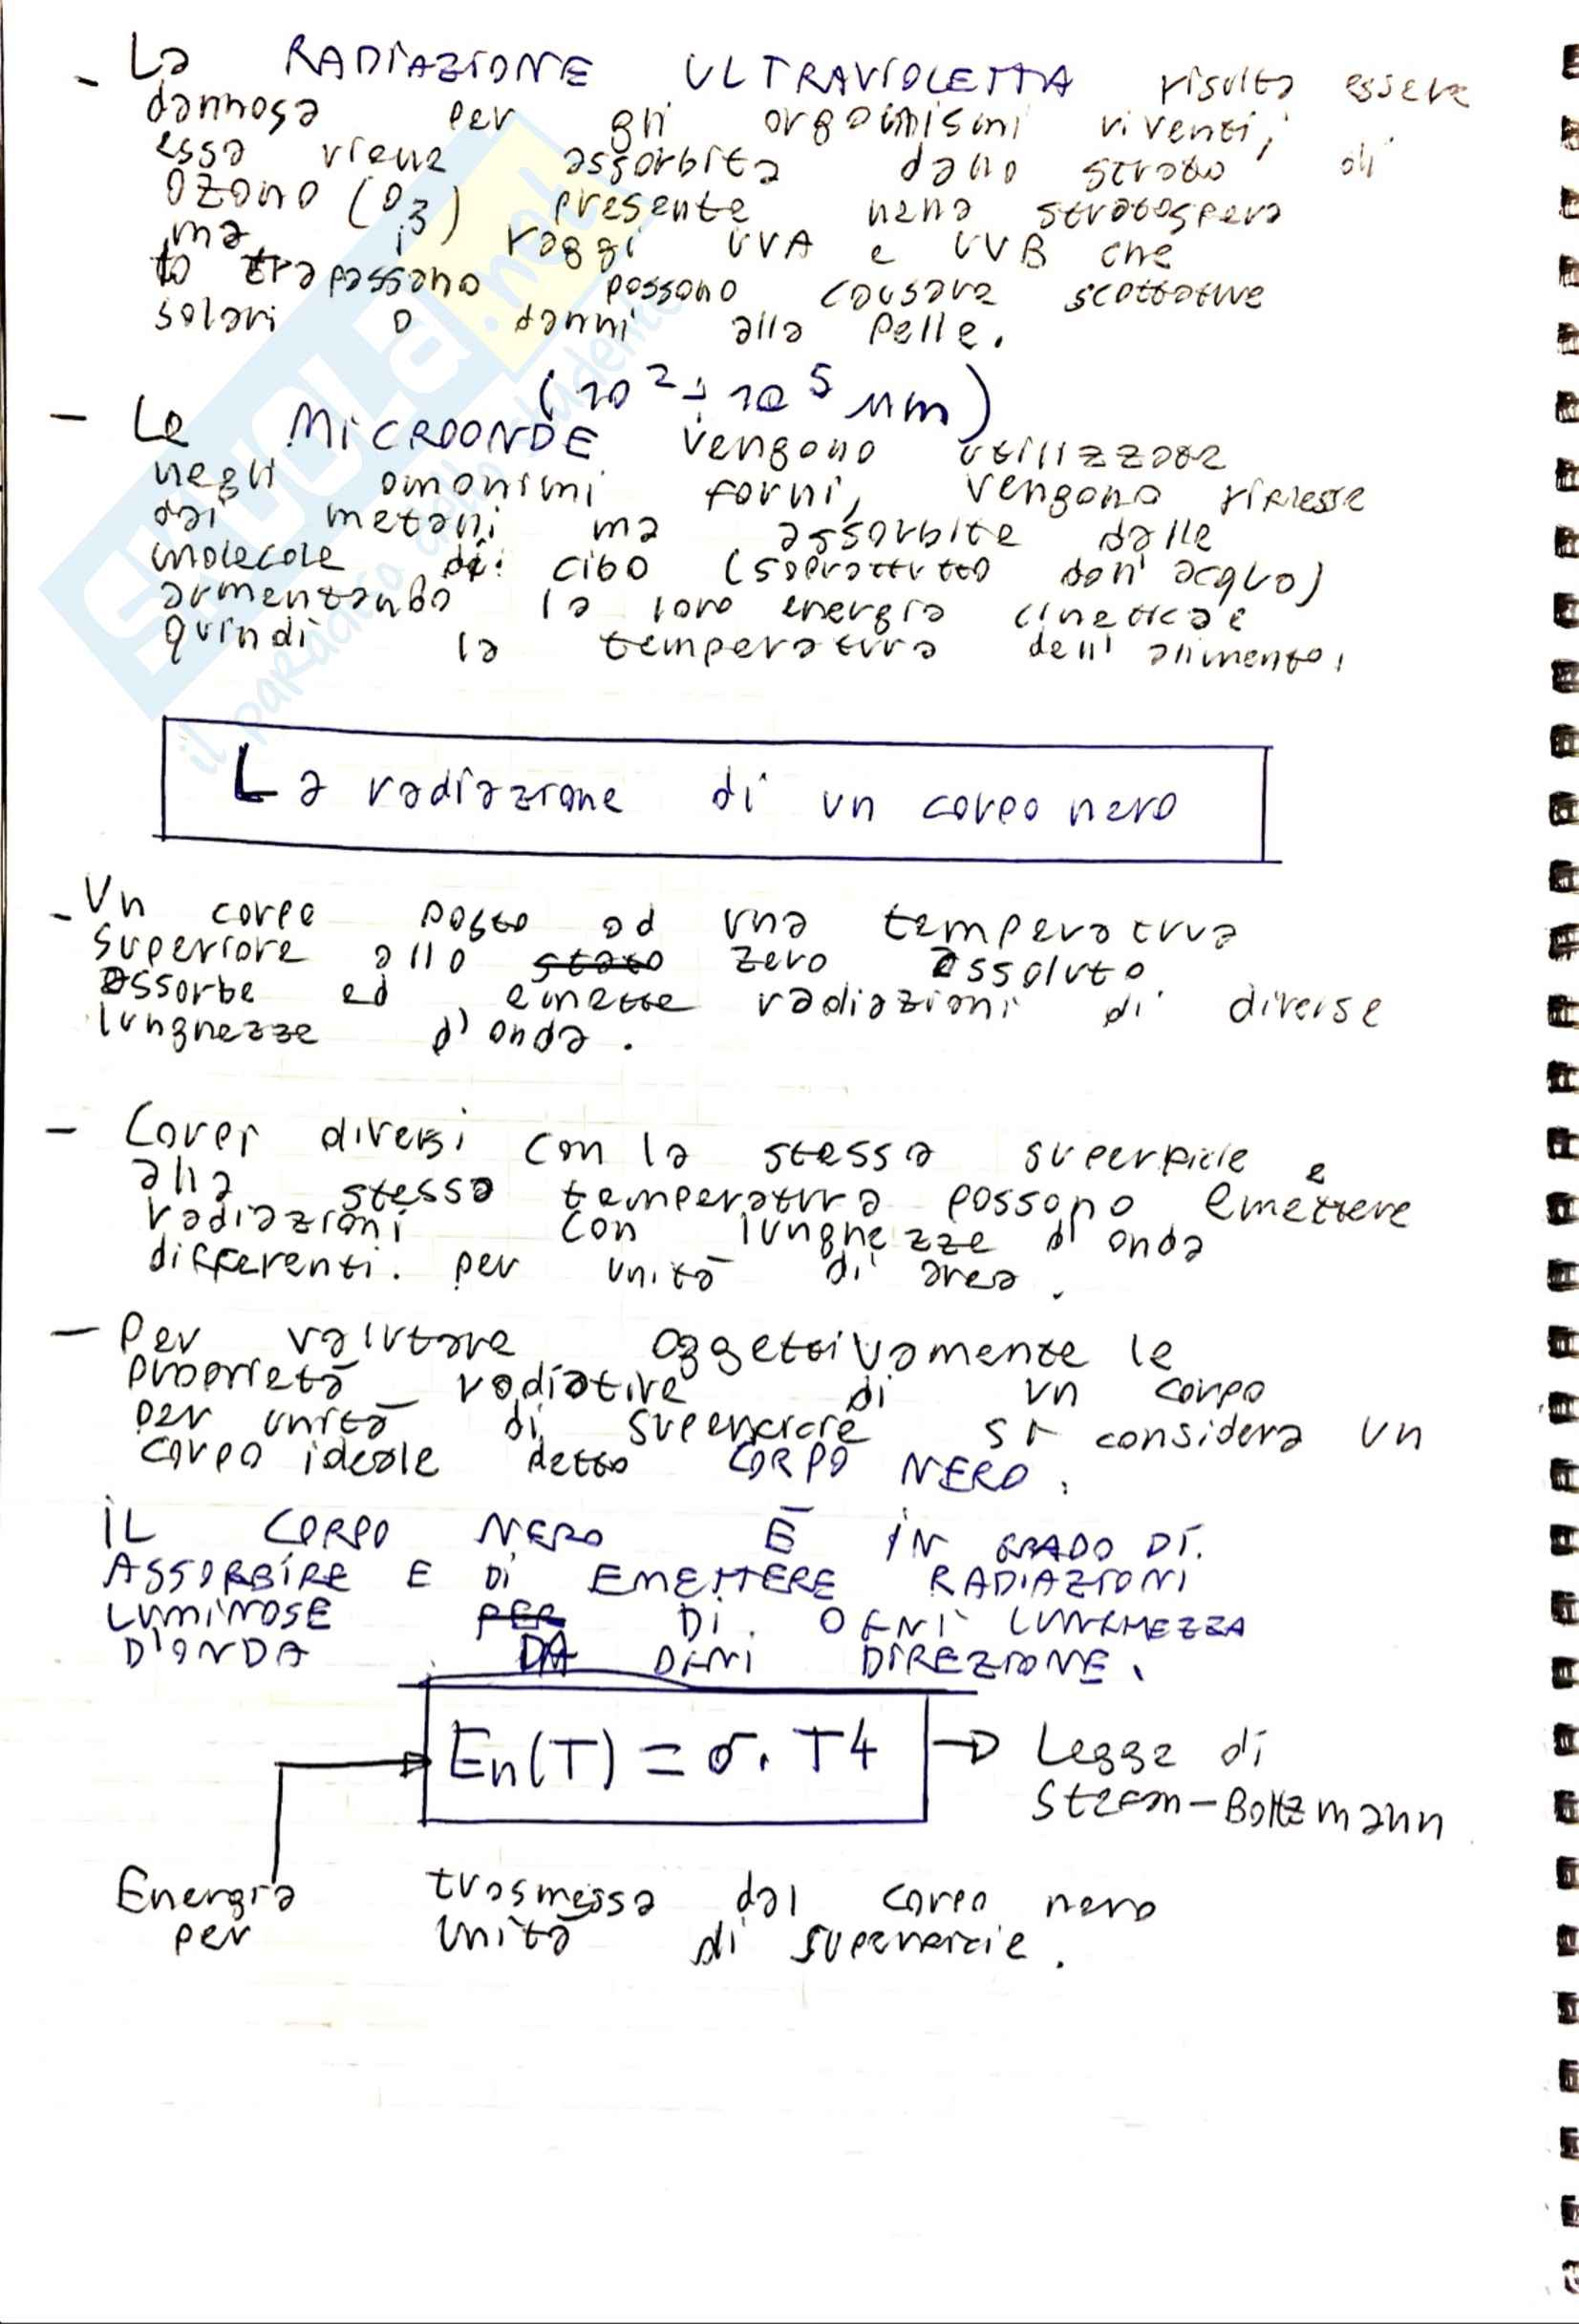 - La RADIAZIONE ULTRAVIOLETTA risulta essere
dannosa per gli organismi viventi;
essa viene assorbita dallo strato di
OZONO (O3) presente nella stratosfera
ma i raggi UVA e UVB che
lo trapassano possono causare scottature
solari o danni alla pelle.
(10² ÷ 10⁵ μm)
- Le MICROONDE vengono utilizzate
negli omonimi forni, vengono riflesse
dai metalli ma assorbite dalle
molecole di cibo (soprattutto dall'acqua)
aumentando la loro energia cinetica e
quindi la temperatura dell'alimento.
La radiazione di un corpo nero
- Un corpo posto ad una temperatura
superiore allo stato zero assoluto
assorbe ed emette radiazioni di diverse
lunghezze d'onda.
- Corpi diversi con la stessa superficie e
alla stessa temperatura possono emettere
radiazioni con lunghezze d'onda
differenti. per unità di area.
- Per valutare oggettivamente le
proprietà radiative di un corpo
per unità di superficie si considera un
corpo ideale detto CORPO NERO.
IL CORPO NERO È IN GRADO DI
ASSORBIRE E DI EMETTERE RADIAZIONI
LUMINOSE PER DI OGNI LUNGHEZZA
D'ONDA DA OGNI DIREZIONE.
En(T) = σ · T4 → Legge di
Stefan-Boltzmann
Energia trasmessa dal corpo nero
per unità di superficie.
SKUOLA.net
il paradiso dello studente